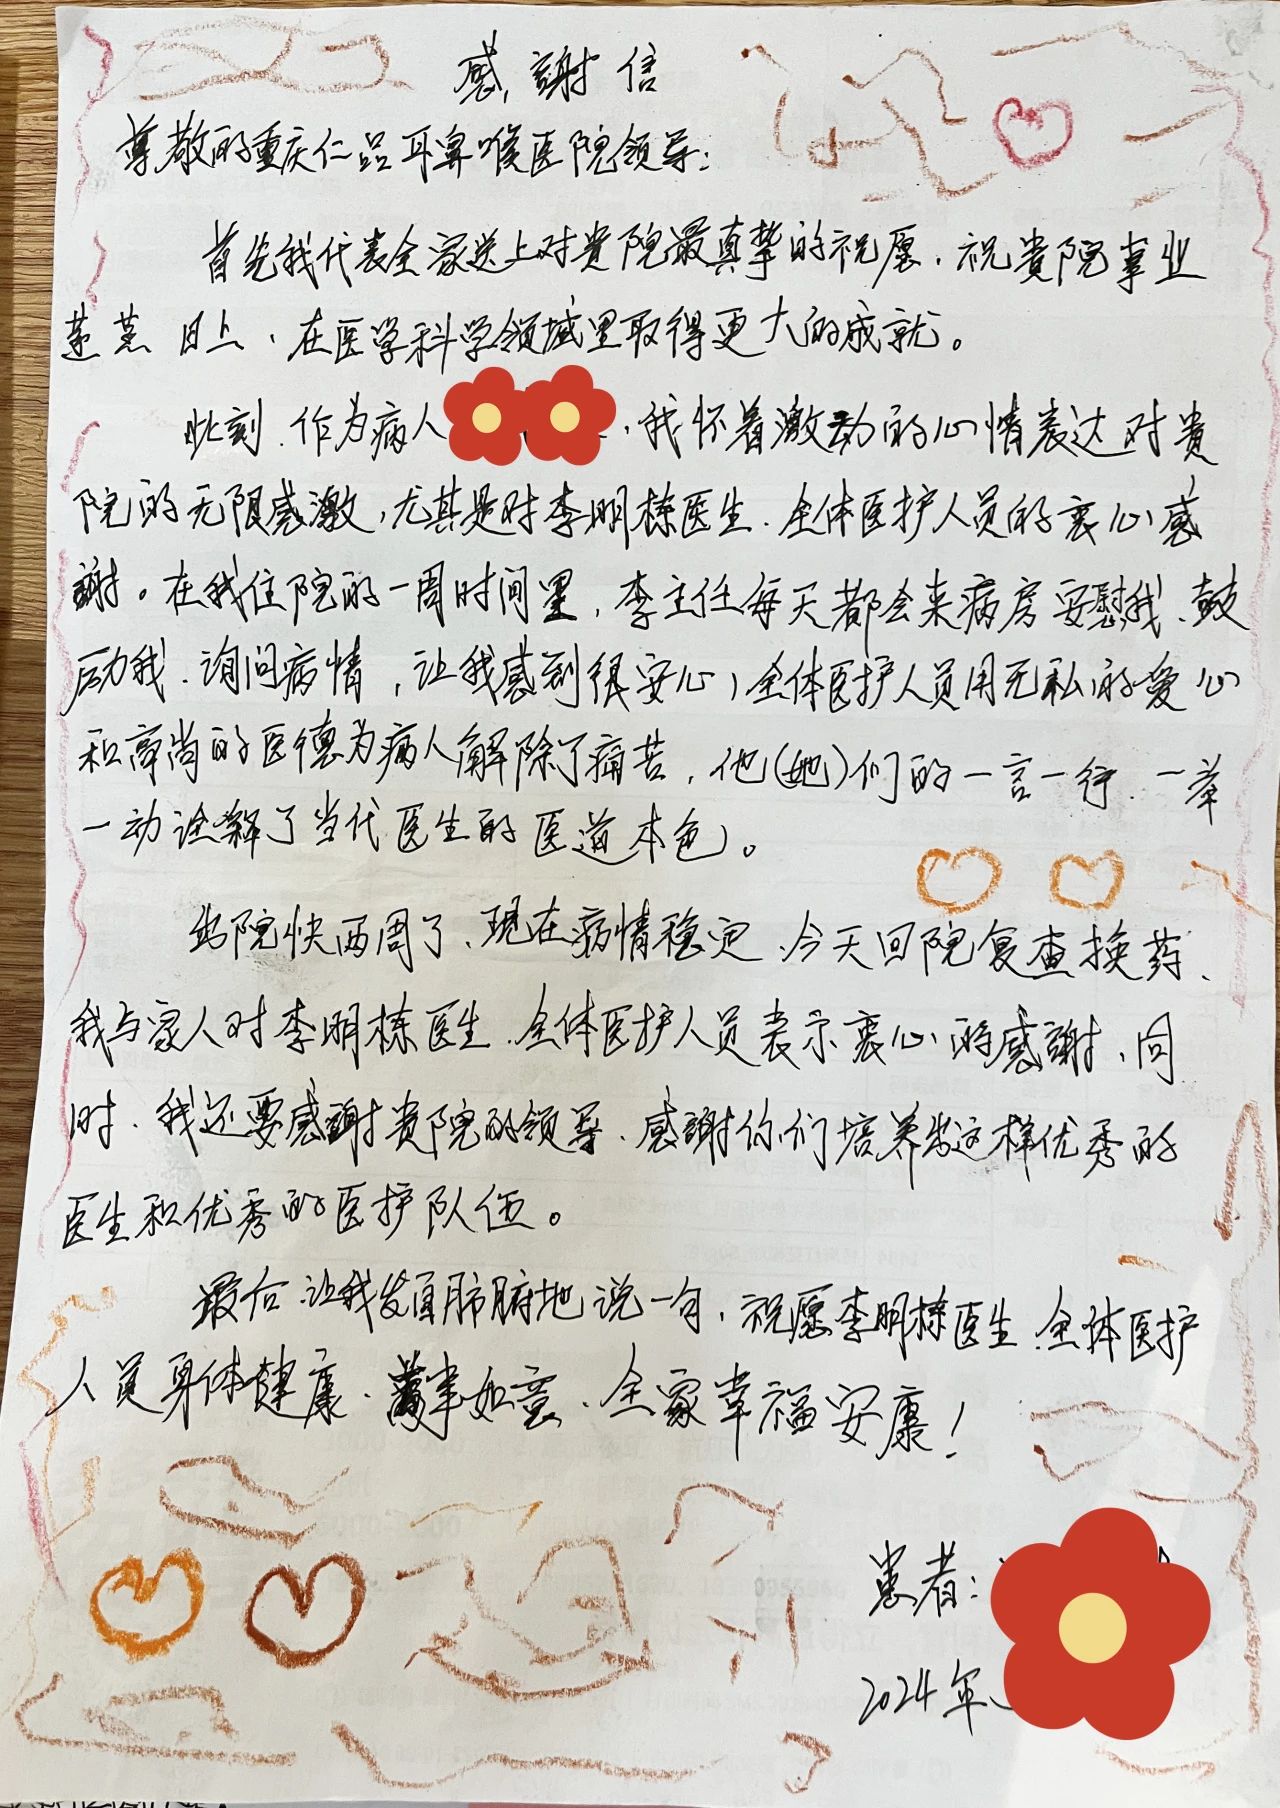 感謝信
尊敬的重庆仁品耳鼻喉医院领导：
首先我代表全家送上对貴院最真挚的祝愿，祝貴院事业
蒸蒸日上，在医学科学领域里取得更大的成就。
此刻，作为病人，我怀着激动的心情表达对贵
院的无限感激，尤其是对李明栋医生、全体医护人员的衷心感
謝。在我住院的一周时间里，李主任每天都会来病房安慰我、鼓
励我、询问病情，让我感到很安心，全体医护人员用无私的爱心
和高尚的医德为病人解除了痛苦，他(她)们的一言一行、一举
一动诠释了当代医生的医道本色。
出院快两周了、现在病情稳定、今天回院复查换药、
我与家人对李明栋医生、全体医护人员表示衷心的感謝，同
时、我还要感謝貴院的领导、感謝你们培养出这样优秀的
医生和优秀的医护队伍。
最后，让我发自肺腑地说一句，祝愿李明栋医生、全体医护
人员身体健康、萬事如意、全家幸福安康！
患者：
2024年